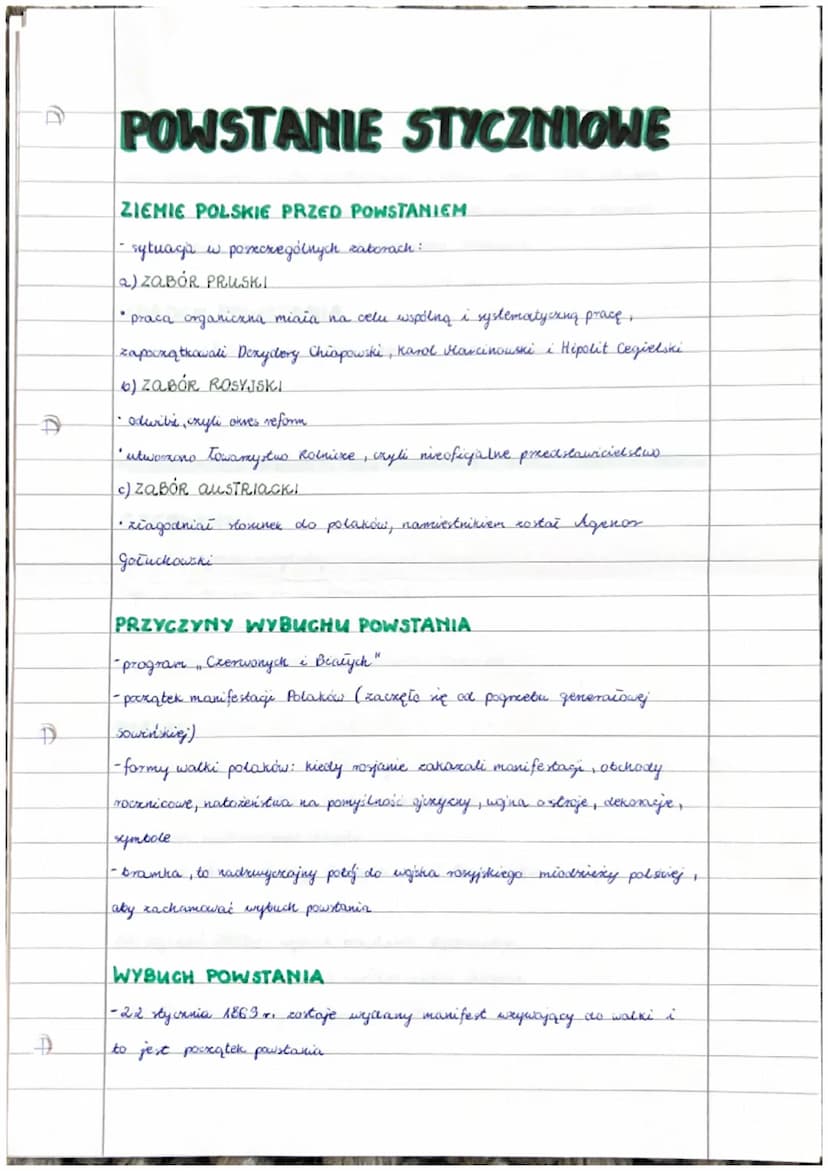 POWSTANIE STYCZNIOWE
ZIEMIE POLSKIE PRZED POWSTANIEM
- sytuacja w poszczególnych zaborach:
a) ZABÓR PRUSKI
• praca organiczna miała na celu wspólną i systematyczną pracę,
zapoczątkowali Dezydery Chłapowski, Karol Marcinowski i Hipolit Cegielski
b) ZABÓR ROSYJSKI
• odwilż, czyli okres reform
• utworzono Towarzystwo Rolnicze, czyli nieoficjalne przedstawicielstwo
c) ZABÓR AUSTRIACKI
• złagodniał stosunek do polaków, namiestnikiem został Agenor
Gołuchowski
PRZYCZYNY WYBUCHU POWSTANIA
- program „Czerwonych i Białych"
- początek manifestacji Polaków (zaczęło się od pogrzebu generałowej
Sowińskiej)
- formy walki polaków: kiedy rosjanie zakazali manifestacji, obchody
rocznicowe, nabożeństwa na pomyślność ojczyzny, wojna o stroje, dekoracje,
symbole
- branka, to nadzwyczajny pobór do wojska rosyjskiego młodzieży polskiej,
aby zachamować wybuch powstania
WYBUCH POWSTANIA
- 22 stycznia 1863 r. zostaje wydany manifest wzywający do walki i
to jest początek powstania